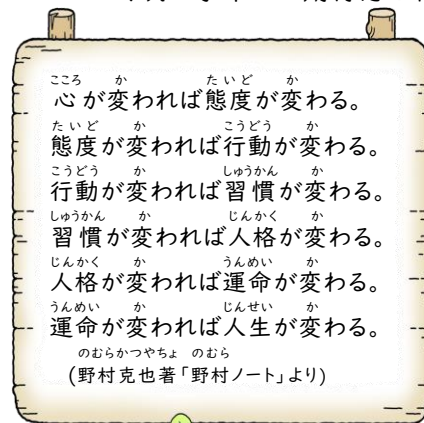 こころ か たいど か
心が変われば態度が変わる。
たいど か こうどう か
態度が変われば行動が変わる。
こうどう か しゅうかん か
行動が変われば習慣が変わる。
しゅうかん か じんかく か
習慣が変われば人格が変わる。
じんかく か うんめい か
人格が変われば運命が変わる。
うんめい か じんせい か
運命が変われば人生が変わる。
のむらかつやちょ のむら
(野村克也著「野村ノート」より)